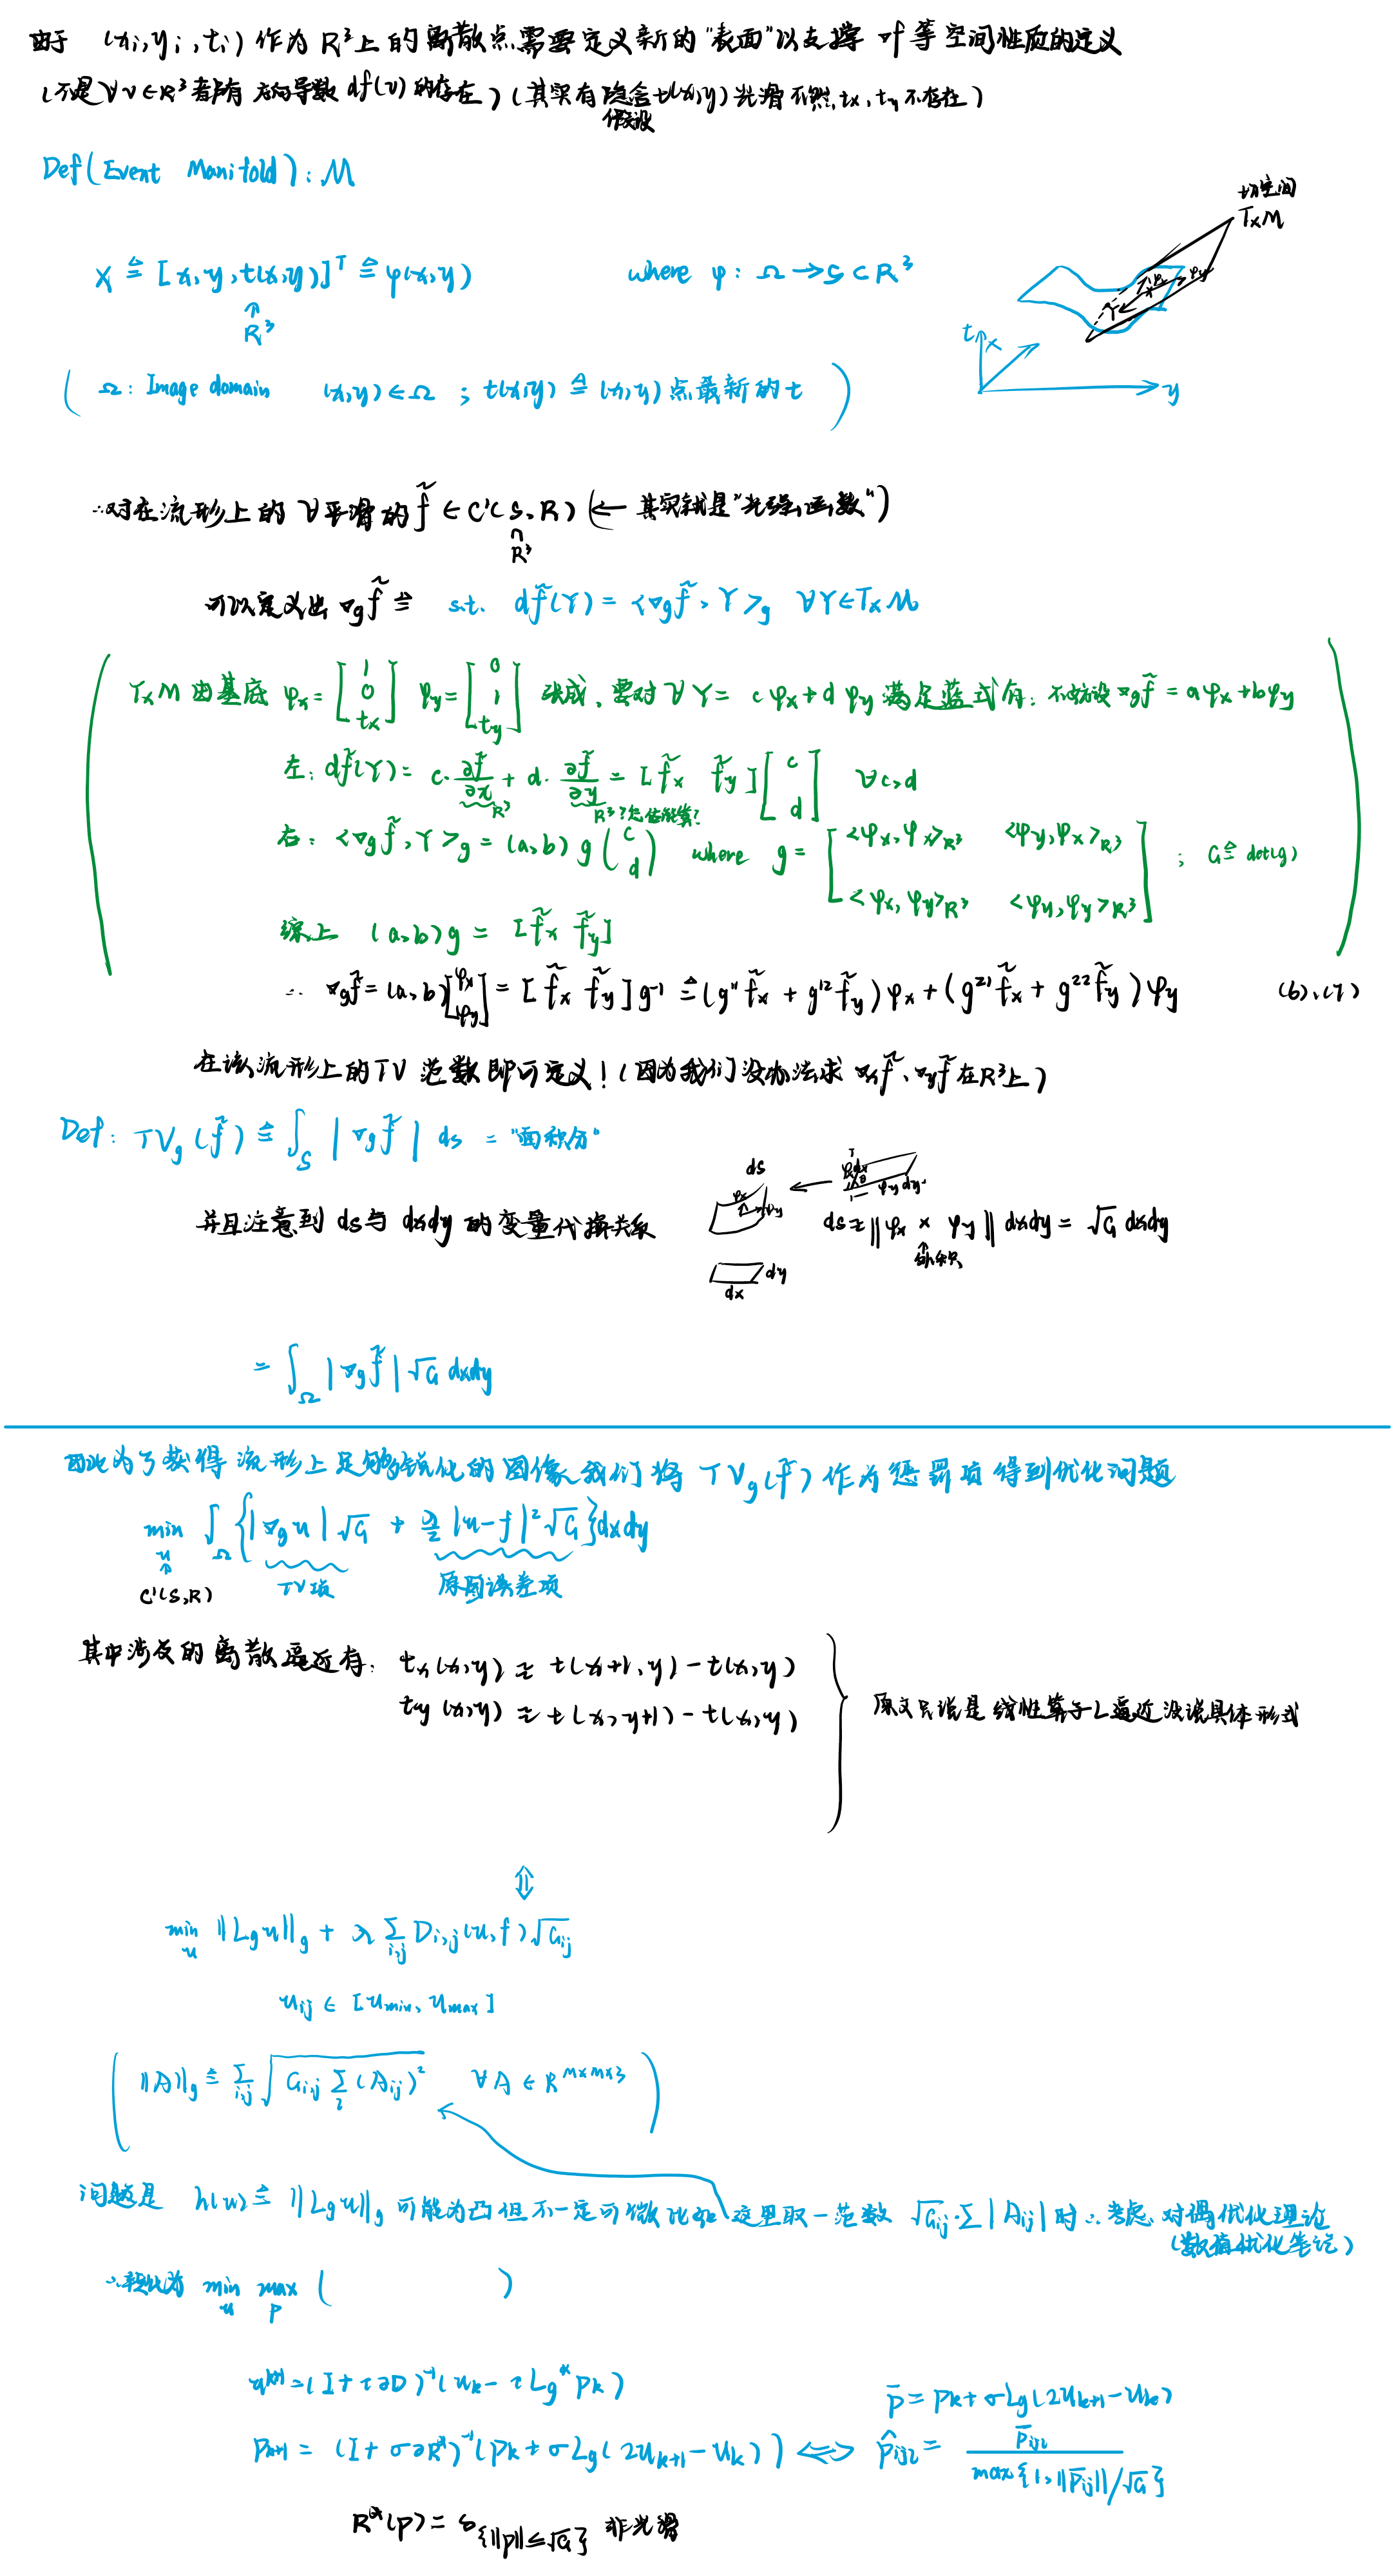 由于 (xi,yi,ti) 作为 R³上的离散点需要定义新的"表面"以支撑 ∇f 等空间性质的定义
(不是∀v∈R³都有方向导数 df(v) 的存在)(其实有隐含假设 t(x,y)光滑 不然 tx,ty 不存在)
Def(Event Manifold): M
切空间
TxM
X ≜ [x,y,t(x,y)]ᵀ ≜ φ(x,y) where φ: Ω→S⊂R³
∩
R³
t x y
(Ω: Image domain (x,y)∈Ω ; t(x,y) ≜ (x,y)点最新的t)
∴对在流形上的∀平滑的 f̃ ∈ C'(S,R) (← 其实就是"光强函数")
∩
R³
可以定义出 ∇g f̃ ≜ s.t. df̃(Y) = <∇g f̃, Y>g ∀Y∈TxM
TxM 由基底 φx = [1 0 tx] φy = [0 1 ty] 张成,需对∀Y = cφx + dφy 满足蓝式有: 不妨设∇g f̃ = aφx + bφy
左: df̃(Y) = c·∂f̃/∂x + d·∂f̃/∂y = [f̃x f̃y][c d] ∀c,d
R³ R³?怎么能算?
右: <∇g f̃, Y>g = (a,b) g (c d) where g = [<φx,φx>R³ <φy,φx>R³ <φx,φy>R³ <φy,φy>R³] ; G≜det(g)
综上 (a,b)g = [f̃x f̃y]
∴ ∇g f̃ = (a,b)[φx φy] = [f̃x f̃y]g⁻¹ ≜ (g¹¹f̃x + g¹²f̃y)φx + (g²¹f̃x + g²²f̃y)φy (6),(7)
在该流形上的TV 范数即可定义!(因为我们没办法求 ∇xf̃、∇yf̃ 在R³上)
Def: TVg(f̃) ≜ ∫S |∇g f̃| ds = "面积分"
并且注意到 ds与 dxdy 的变量代换关系
ds φx φy φxdx φydy
ds = ||φx × φy|| dxdy = √G dxdy
dx dy
= ∫Ω |∇g f̃| √G dxdy
因此为了获得 流形上足够锐化的图像我们将 TVg(f̃) 作为惩罚项 得到优化问题
min u ∫Ω {|∇g u|√G + λ/2 |u-f|²√G}dxdy
C'(S,R) TV项 原图误差项
其中涉及的离散逼近有: tx(x,y) ≈ t(x+1,y) - t(x,y)
ty(x,y) ≈ t(x,y+1) - t(x,y)
原文只说是 线性算子L逼近 没说具体形式
⇕
min u ||Lg u||g + λ Σi,j Di,j(u,f)√Gij
uij ∈ [umin, umax]
(||A||g ≜ Σi,j √(Gi,j Σl (Aij)²) ∀A ∈ R^M×M×3)
问题是 h(u) ≜ ||Lg u||g 可能为凸但不一定可微 比如 这里取一范数 √Gij·Σ|Aij| 时 ∴考虑 对偶优化理论
(数值优化笔记)
∴转化为 min u max p ( )
uk+1 = (I+τ∂D)⁻¹(uk - τLg*pk)
p̄ = pk + σLg(2uk+1 - uk)
pk+1 = (I + σ∂R*)⁻¹(pk + σLg(2uk+1 - uk)) ⟺ p̂ijl = p̄ijl / max{1, ||p̄ij||/√G}
R*(p) = δ{||p||≤√G} 非光滑